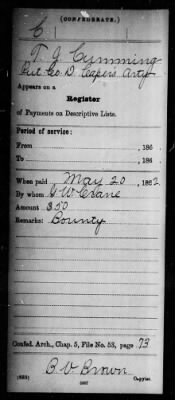 (CONFEDERATE.)
C
T J Cumming
Pvt Co. D. Capers Arty
Appears on a
Register
of Payments on Descriptive Lists.
Period of service:
From , 186 .
To , 186 .
When paid, May 20, 1862.
By whom W Crane
Amount $50
Remarks: Bounty
Confed. Arch., Chap. 5, File No. 53, page 73
B. V Brown
Copyist.